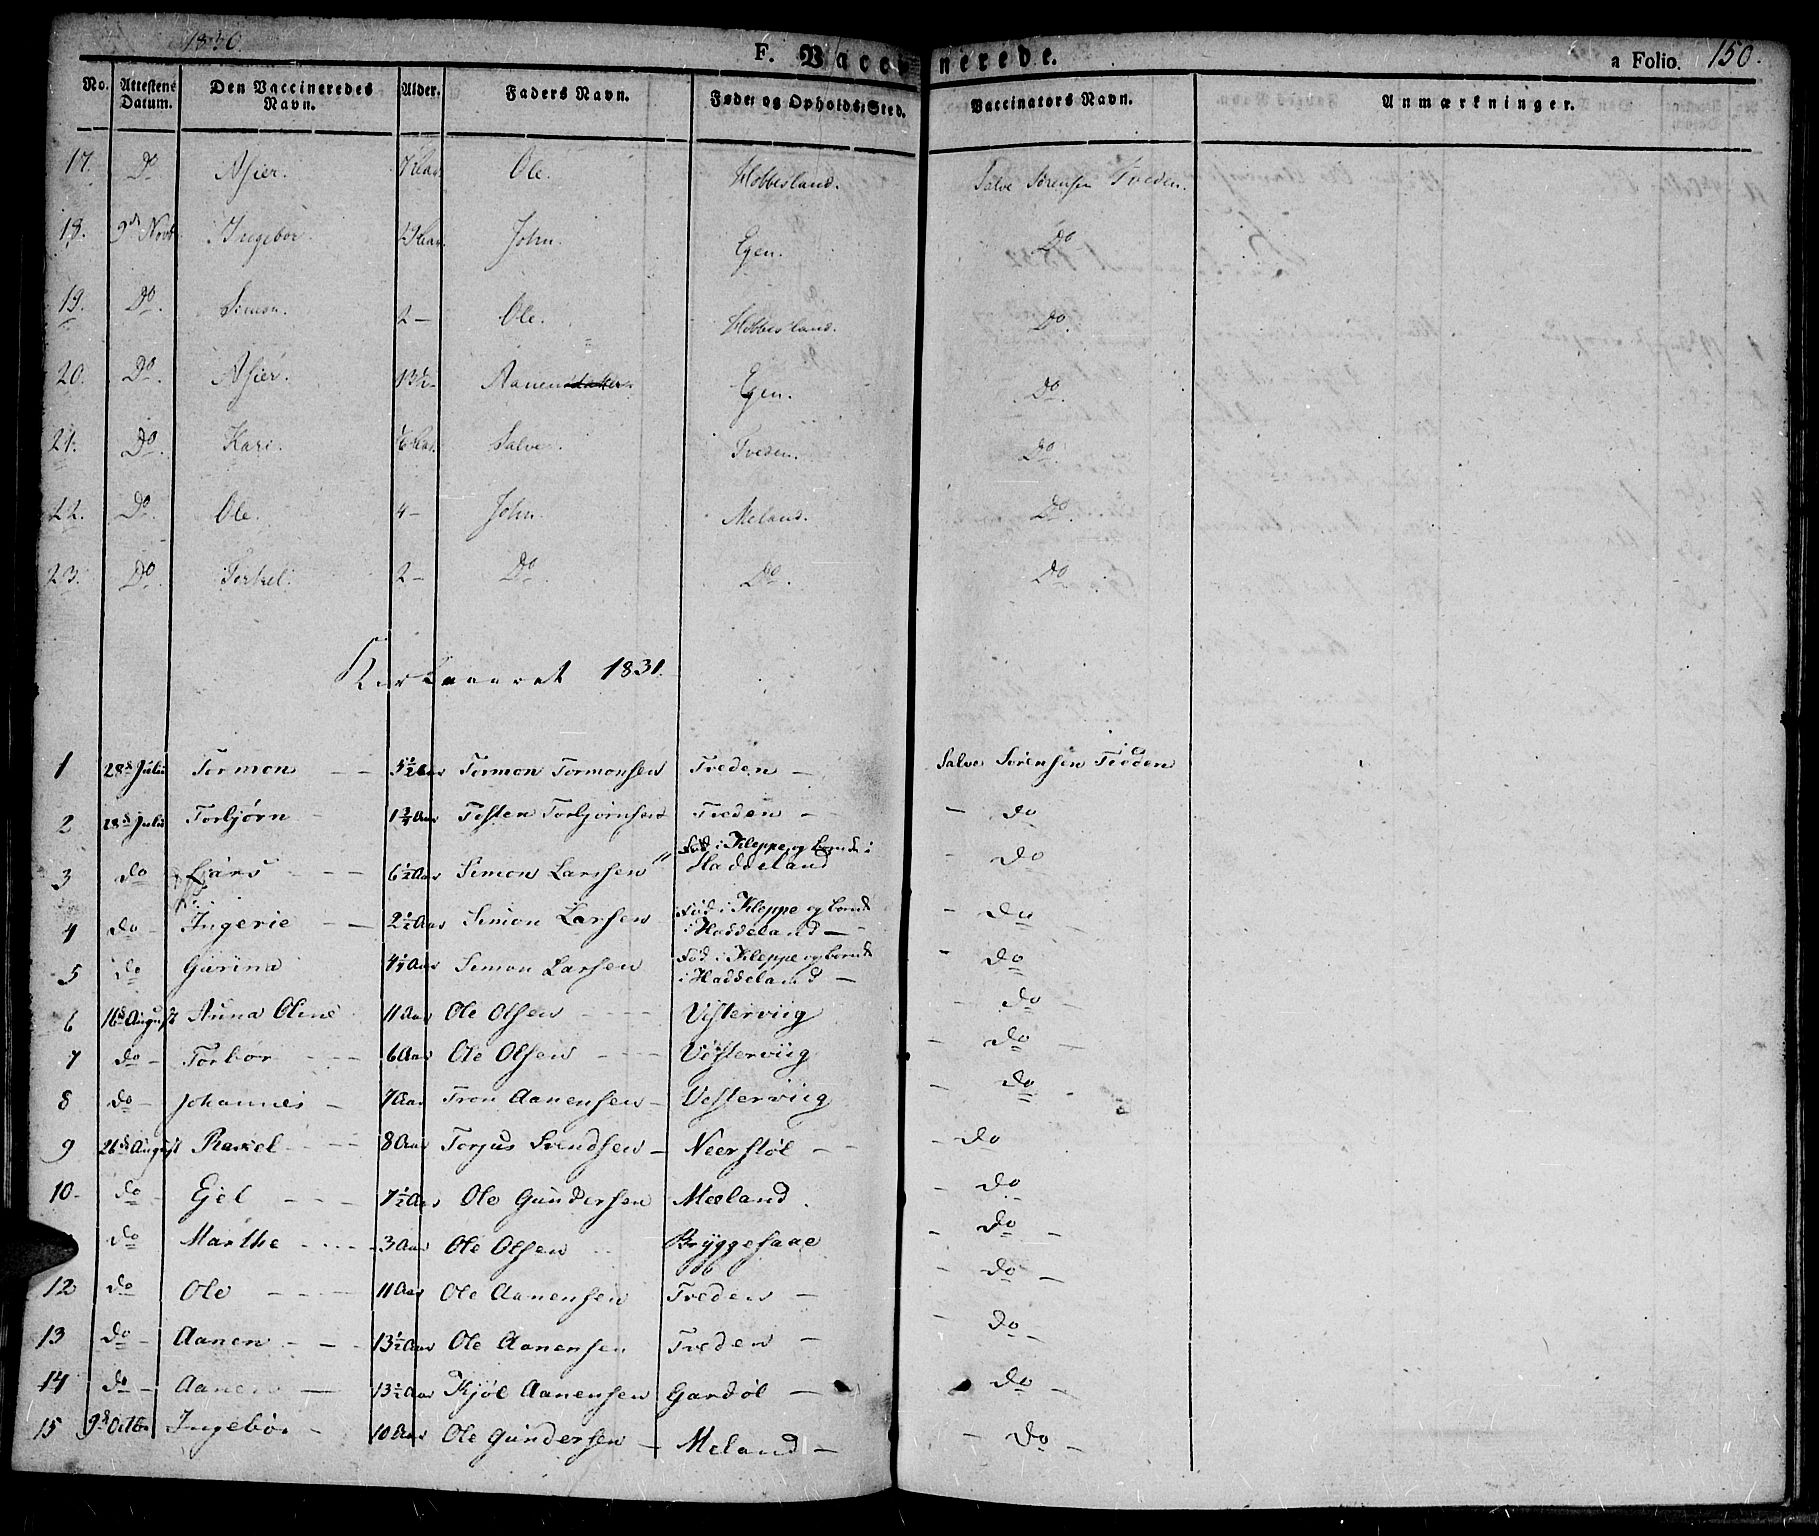 1830.
F. Vaccinerede.
a Folio. 150.
No. Attestens Datum. Den Vaccineredes Navn. Alder. Faders Navn. Føde: og Opholds:Sted. Vaccinators Navn. Anmærkninger.
17. Do Asier. Ole. Hobbesland. Salve Sørensen Tveden.
18. 9de Novb Ingebor. John. Egen. Do
19. Do. Simon. 2 – Ole. Hobbesland. Do.
20. Do. Asier. 13½ Aanen Egen. Do.
21. Do. Kari. Salve. Tveden. Do.
22. Do. Ole. 4 – John. Meland. Do.
23. Do. Terkel. 2 – Do. Do. Do.
Kirkeaaret 1831.
1 28de Julii Tormon – – 5½ Aar Tormon Tormonsen Tveden – Salve Sørensen Tveden
2 28de Julii Torbjørn – 1¾ Aar Testen Torbjørnsen Tveden – – do
3 do Lars – – – 6½ Aar Simon Larssen Fød i Kleppe og boende i Haddeland – do
4 do – Ingerie – – 2½ Aar Simon Larsen Fød i Kleppe og boende i Haddeland – – do
5 do Gurina 4¼ Aar Simon Larsen Fød i Kleppe og boende i Haddeland – – do
6 16de August Anna Oline 11 Aar Ole Olsen – – – Vesterviig – do –
7 do – Torbor – – – 6 Aar Ole Olsen – – – Vesterviig – do –
8 do – Johannes – 7 Aar Tron Aanensen – Vesterviig – do
9 26de August Rakel – – – 8 Aar Torjus Svendsen – Neerstøl – – do
10 – do – Ejel – – – 7½ Aar Ole Gundersen Mæland. – do
do Marthe – – – – 3 Aar Ole Olsen Bryggesaae – do –
12 do Ole – – – – 11 Aar Ole Aanensen Tveden – – do –
13 do – Aanen – – – 13½ Aar Ole Aanensen Tveden – – do –
14 do – Aanen – 13½ Aar Kjøl Aanensen Gardøl – do –
15 9de Octbr Ingebør – 10 Aar Ole Gundersen – Meland – – do –